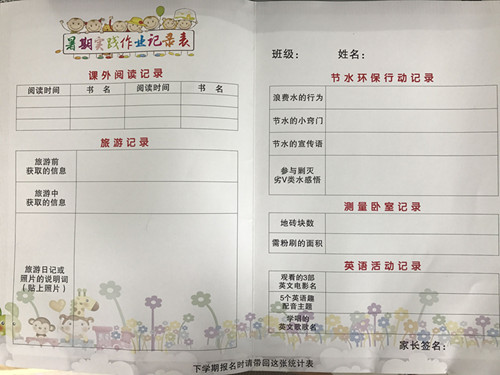 暑期实践作业记录表
课外阅读记录
阅读时间 书 名 阅读时间 书 名
旅游记录
旅游前
获取的信息
旅游中
获取的信息
旅游日记或
照片的说明词
(贴上照片)
班级: 姓名:
节水环保行动记录
浪费水的行为
节水的小窍门
节水的宣传语
参与剿灭
劣V类水感悟
测量卧室记录
地砖块数
需粉刷的面积
英语活动记录
观看的3部
英文电影名
5个英语趣
配音主题
学唱的
英文歌歌名
家长签名:
下学期报名时请带回这张统计表